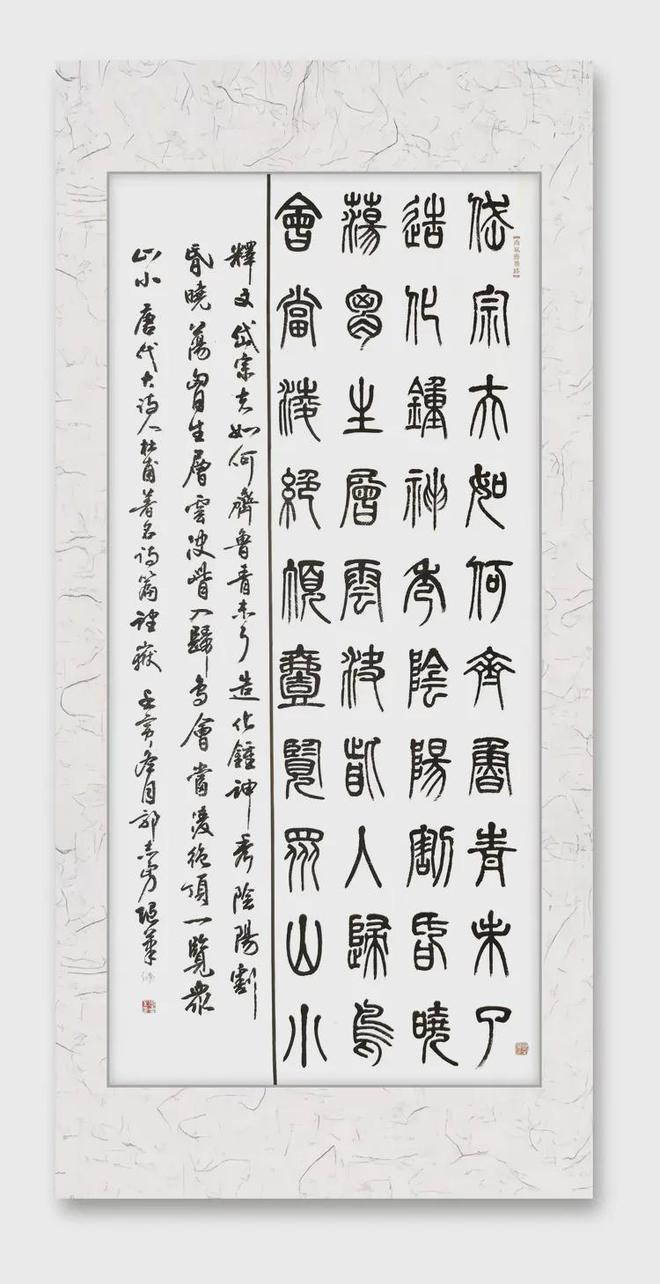 岱宗夫如何齊魯青未了
造化鍾神秀陰陽割昏曉
蕩胷生層雲決眥入歸鳥
會當淩絕頂壹覽眾山小
釋文 岱宗夫如何齊魯青未了造化鍾神秀陰陽割
昏曉蕩胷生層雲決眥入歸鳥會當凌絕頂一覽眾
山小 唐代大诗人杜甫著名诗篇望嶽 壬寅冬月郭志